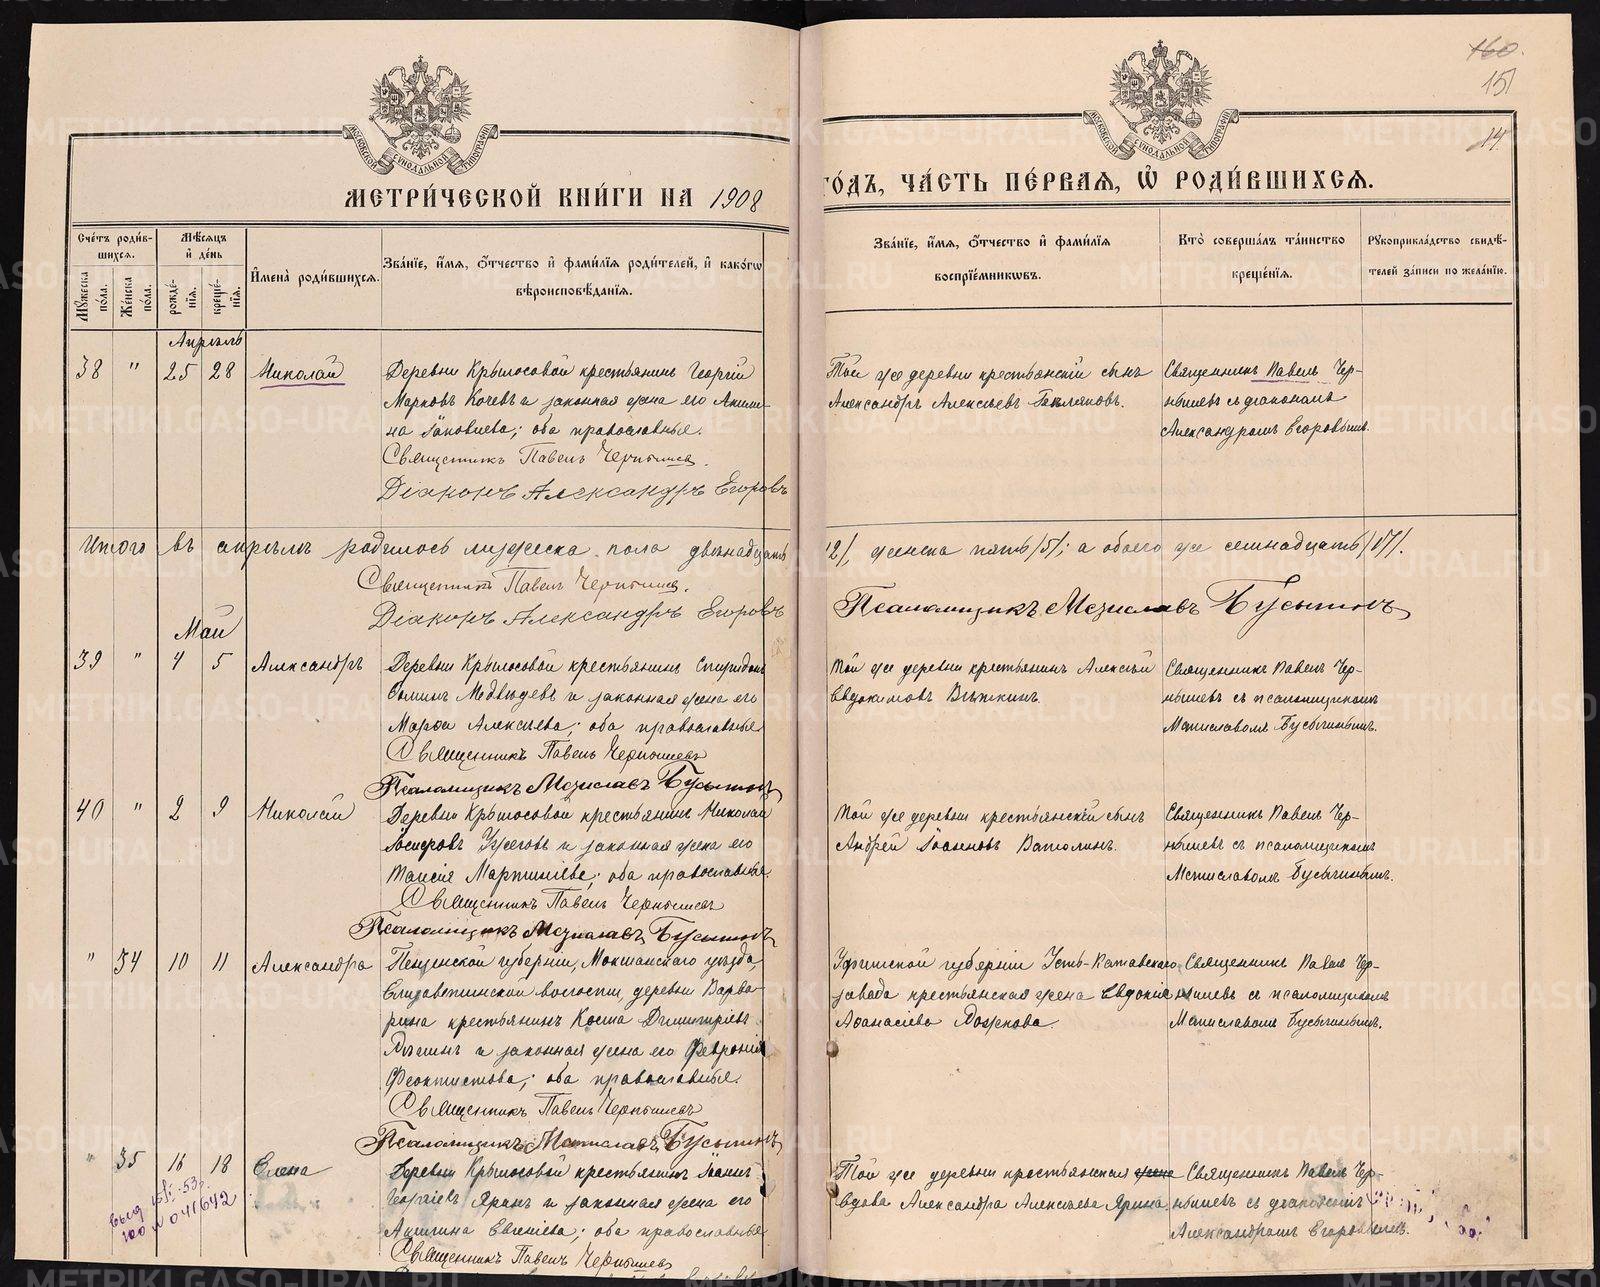 160.
151
14.
МОСКОВСКОЙ СѴНОДАЛЬНОЙ ТИПОГРАФІИ
МОСКОВСКОЙ СѴНОДАЛЬНОЙ ТИПОГРАФІИ
МЕТРИ́ЧЕСКОЙ КНИ́ГИ НА 1908 ГО́ДЪ, ЧА́СТЬ ПЕ́РВАЯ, Ѡ҆ РОДИ́ВШИХСЯ.
Сче́тъ роди́вшихся.
Му́жеска по́ла.
Же́нска по́ла.
Мѣ́сяцъ и҆ де́нь
рожде́нїя.
креще́нїя.
И҆мена̀ роди́вшихся.
Зва́нїе, и҆́мя, ѻ҆́тчество и҆ фами́лїя роди́телей, и҆ како́гѡ вѣроисповѣ́данїя.
Зва́нїе, и҆́мя, ѻ҆́тчество и҆ фами́лїя воспрїе́мникѡвъ.
Кто̀ соверша́лъ та́инство креще́нїя.
Рукоприкла́дство свидѣ́телей за́писи по жела́нїю.
Апрѣль
38 " 25 28 Николай
Деревни Крылосовой крестьянинъ Георгій
Марковъ Кочевъ и законная жена его Акили-
на Іаковлева; оба православные.
Священникъ Павелъ Чернышевъ.
Діаконъ Александръ Егоровъ
Той же деревни крестьянскій сынъ
Александръ Алексѣевъ
Священникъ Павелъ Чер-
нышевъ съ діакономъ
Александромъ Егоровымъ.
Итого въ апрѣлѣ родилось мужеска пола двѣнадцать
12/, женска пять /5/; а обоего же семнадцать /17/.
Священникъ Павелъ Чернышевъ.
Діаконъ Александръ Егоровъ
Псаломщикъ Мстиславъ Бусыгинъ
Май
39 " 4 5 Александръ
Деревни Крылосовой крестьянинъ Спиридонъ
Ѳоминъ Медвѣдевъ и законная жена его
Марѳа Алексѣева; оба православные
Священникъ Павелъ Чернышевъ
Псаломщикъ Мстиславъ Бусыгинъ
Той же деревни крестьянинъ Алексѣй
Евдокимовъ Вяткинъ.
Священникъ Павелъ Чер-
нышевъ съ псаломщикомъ
Мстиславомъ Бусыгинымъ.
40 " 2 9 Николай
Деревни Крылосовой крестьянинъ Николай
Іосифовъ Ужеговъ и законная жена его
Таисія Мартиніева; оба православные.
Священникъ Павелъ Чернышевъ
Псаломщикъ Мстиславъ Бусыгинъ
Той же деревни крестьянскій сынъ
Андрей Іоанновъ Ватолинъ.
Священникъ Павелъ Чер-
нышевъ съ псаломщикомъ
Мстиславомъ Бусыгинымъ.
" 34 10 11 Александра
Пензенской губерніи, Мокшанскаго уѣзда,
Елизаветинской волости, деревни Варва-
рина крестьянинъ Косма Димитріевъ
и законная жена его Февронія
Феоктистова; оба православные.
Священникъ Павелъ Чернышевъ
Псаломщикъ Мстиславъ Бусыгинъ
Уфимской губерніи Усть-Катавскаго
завода крестьянская жена Евдокія
Аѳанасіева Рожкова.
Священникъ Павелъ Чер-
нышевъ съ псаломщикомъ
Мстиславомъ Бусыгинымъ.
" 35 16 18 Елена
Деревни Крылосовой крестьянинъ Іоаннъ
Георгіевъ Яринъ и законная жена его
Акилина Евгеніева; оба православные
Священникъ Павелъ Чернышевъ
Той же деревни крестьянская жена
вдова Александра Алексѣева Ярина.
Священникъ Павелъ Чер-
нышевъ съ діакономъ
Александромъ Егоровымъ.
№ 041642
METRIKI.GASO-URAL.RU